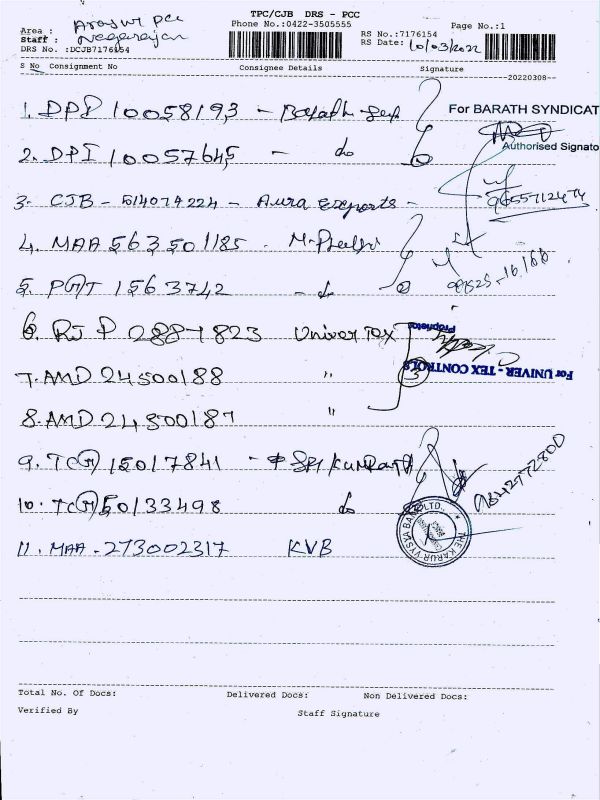 TPC/CJB DRS - PCC
Area : Arasur pcc
Phone No.:0422-3505555
Page No.:1
Staff : Nagarajan
RS No.:7176154
DRS No. :DCJB7176154
RS Date: 10/03/2022
S No Consignment No Consignee Details Signature
20220308--
1. DPI 10058193 - Barath Syn
For BARATH SYNDICAT
Authorised Signato
2. DPI 10057645 - do
9655712474
3- CJB - 514074224 - Aura Exports -
4. MAA 563501185 - M.
5. PGT 1563742 - do
6. RJP 2887823 Univer Tex
Proprietor
For UNIVER - TEX CONTROLS
7. AMD 24500188 "
3
8. AMD 24500187 "
9. TCG 15017841 - Sri Kumaran
9842772800
10. TCG 50133498 do
THE KARUR VYSYA BANK LTD.,
11. MAA - 273002317 KVB
Total No. Of Docs: Delivered Docs: Non Delivered Docs:
Verified By Staff Signature